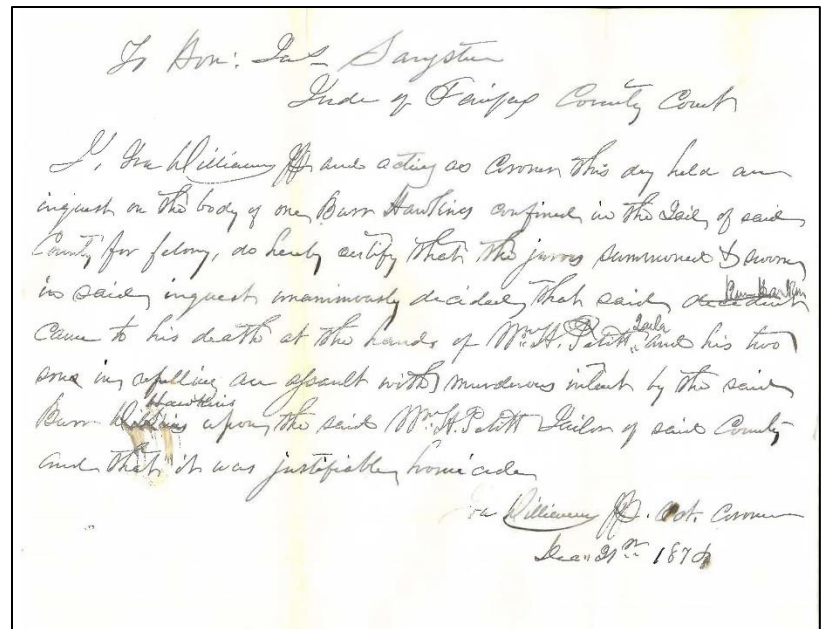 To Hon: Jas Sangster
Jude of Fairfax County Court
I, Ira Williams JP and acting as Coroner this day held an
inquest on the body of one Burr Hawkins confined in the Jail of said
County for felony, do hereby certify that the jurors summoned & sworn
in said inquest unanimously decided that said decedent Burr Hawkins
came to his death at the hands of Wm. H. Petitt Jailor and his two
sons in repelling an assault with murderous intent by the said
Burr Hawkins upon the said Wm. H. Petitt Jailor of said County
and that it was justifiable homicide
Ira Williams JP. Act. Coroner
Dec 21st 1874